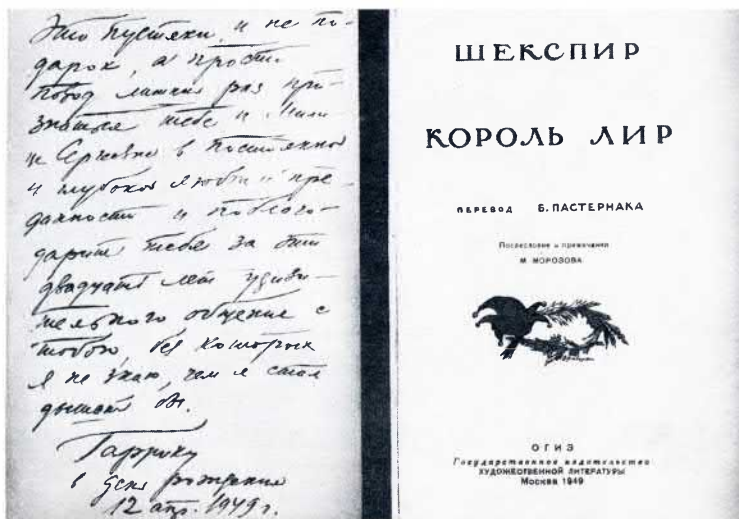 Это пустяки, и не по-
дарок, а просто
повод лишний раз при-
знаться тебе и Нине
Сергеевне в постоянной
и глубокой любви и пре-
данности и поблаго-
дарить тебя за эти
двадцать лет удиви-
тельного общения с
тобою, без которых
я не знаю, чем я стал
дышать бы.
Гаррику
в день рождения
12 апр. 1949 г.
ШЕКСПИР
КОРОЛЬ ЛИР
ПЕРЕВОД Б. ПАСТЕРНАКА
Послесловие и примечания
М. МОРОЗОВА
ОГИЗ
Государственное издательство
ХУДОЖЕСТВЕННОЙ ЛИТЕРАТУРЫ
Москва 1949